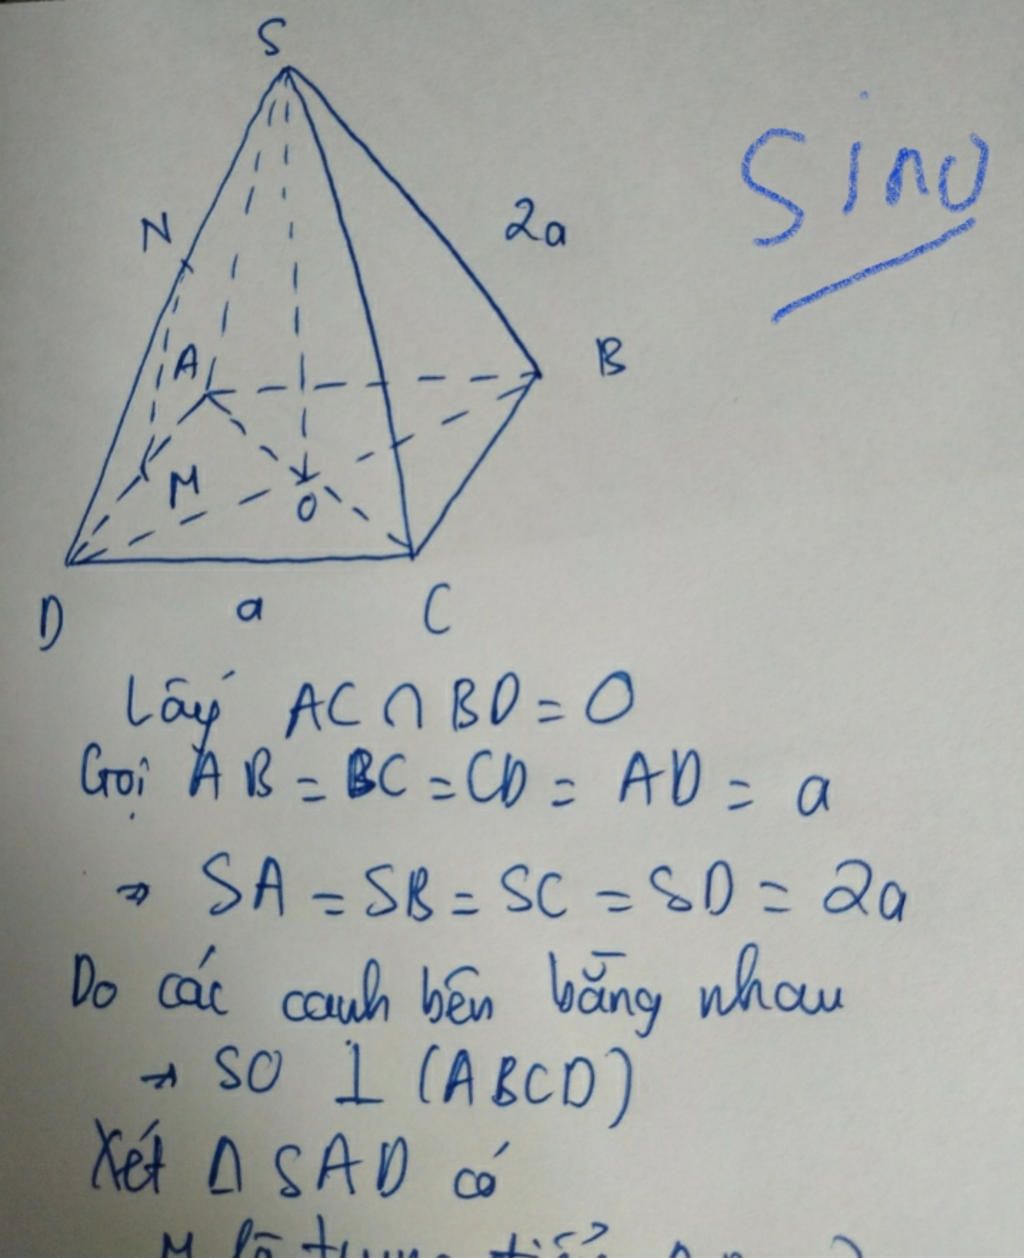 S
sinu
N
2a
A
B
M
O
D
a
C
Lấy AC ∩ BD = O
Gọi AB = BC = CD = AD = a
→ SA = SB = SC = SD = 2a
Do các cạnh bên bằng nhau
→ SO ⊥ (ABCD)
Xét Δ SAD có
M là trung